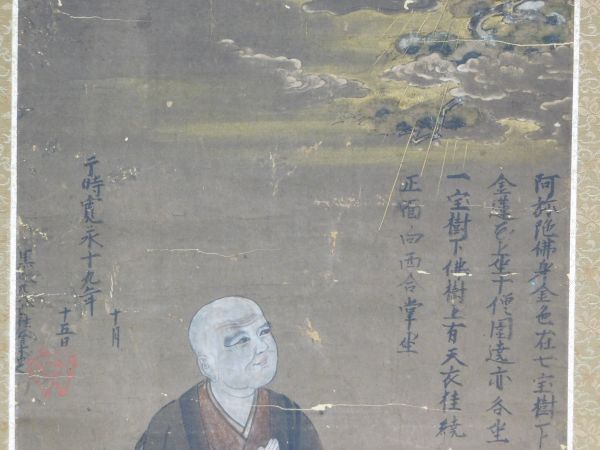 阿弥陀佛身金色在七宝樹下
金蓮花上坐十僧圍遶亦各坐
一宝樹下佛樹上有天衣挂繞
正面向西合掌坐
于時寛永十九年
十月
十五日